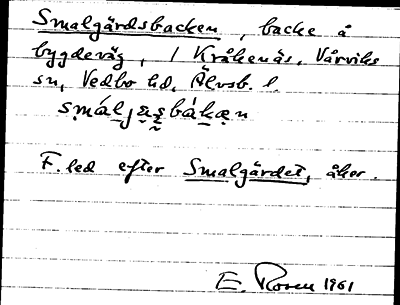 Smalgärdsbacken, backe å
bygdeväg, i Kråkenäs, Vårviks
sn, Vedbo hd, Älvsb. l.
F. led efter Smalgärdet, åker.
E. Rosen 1961